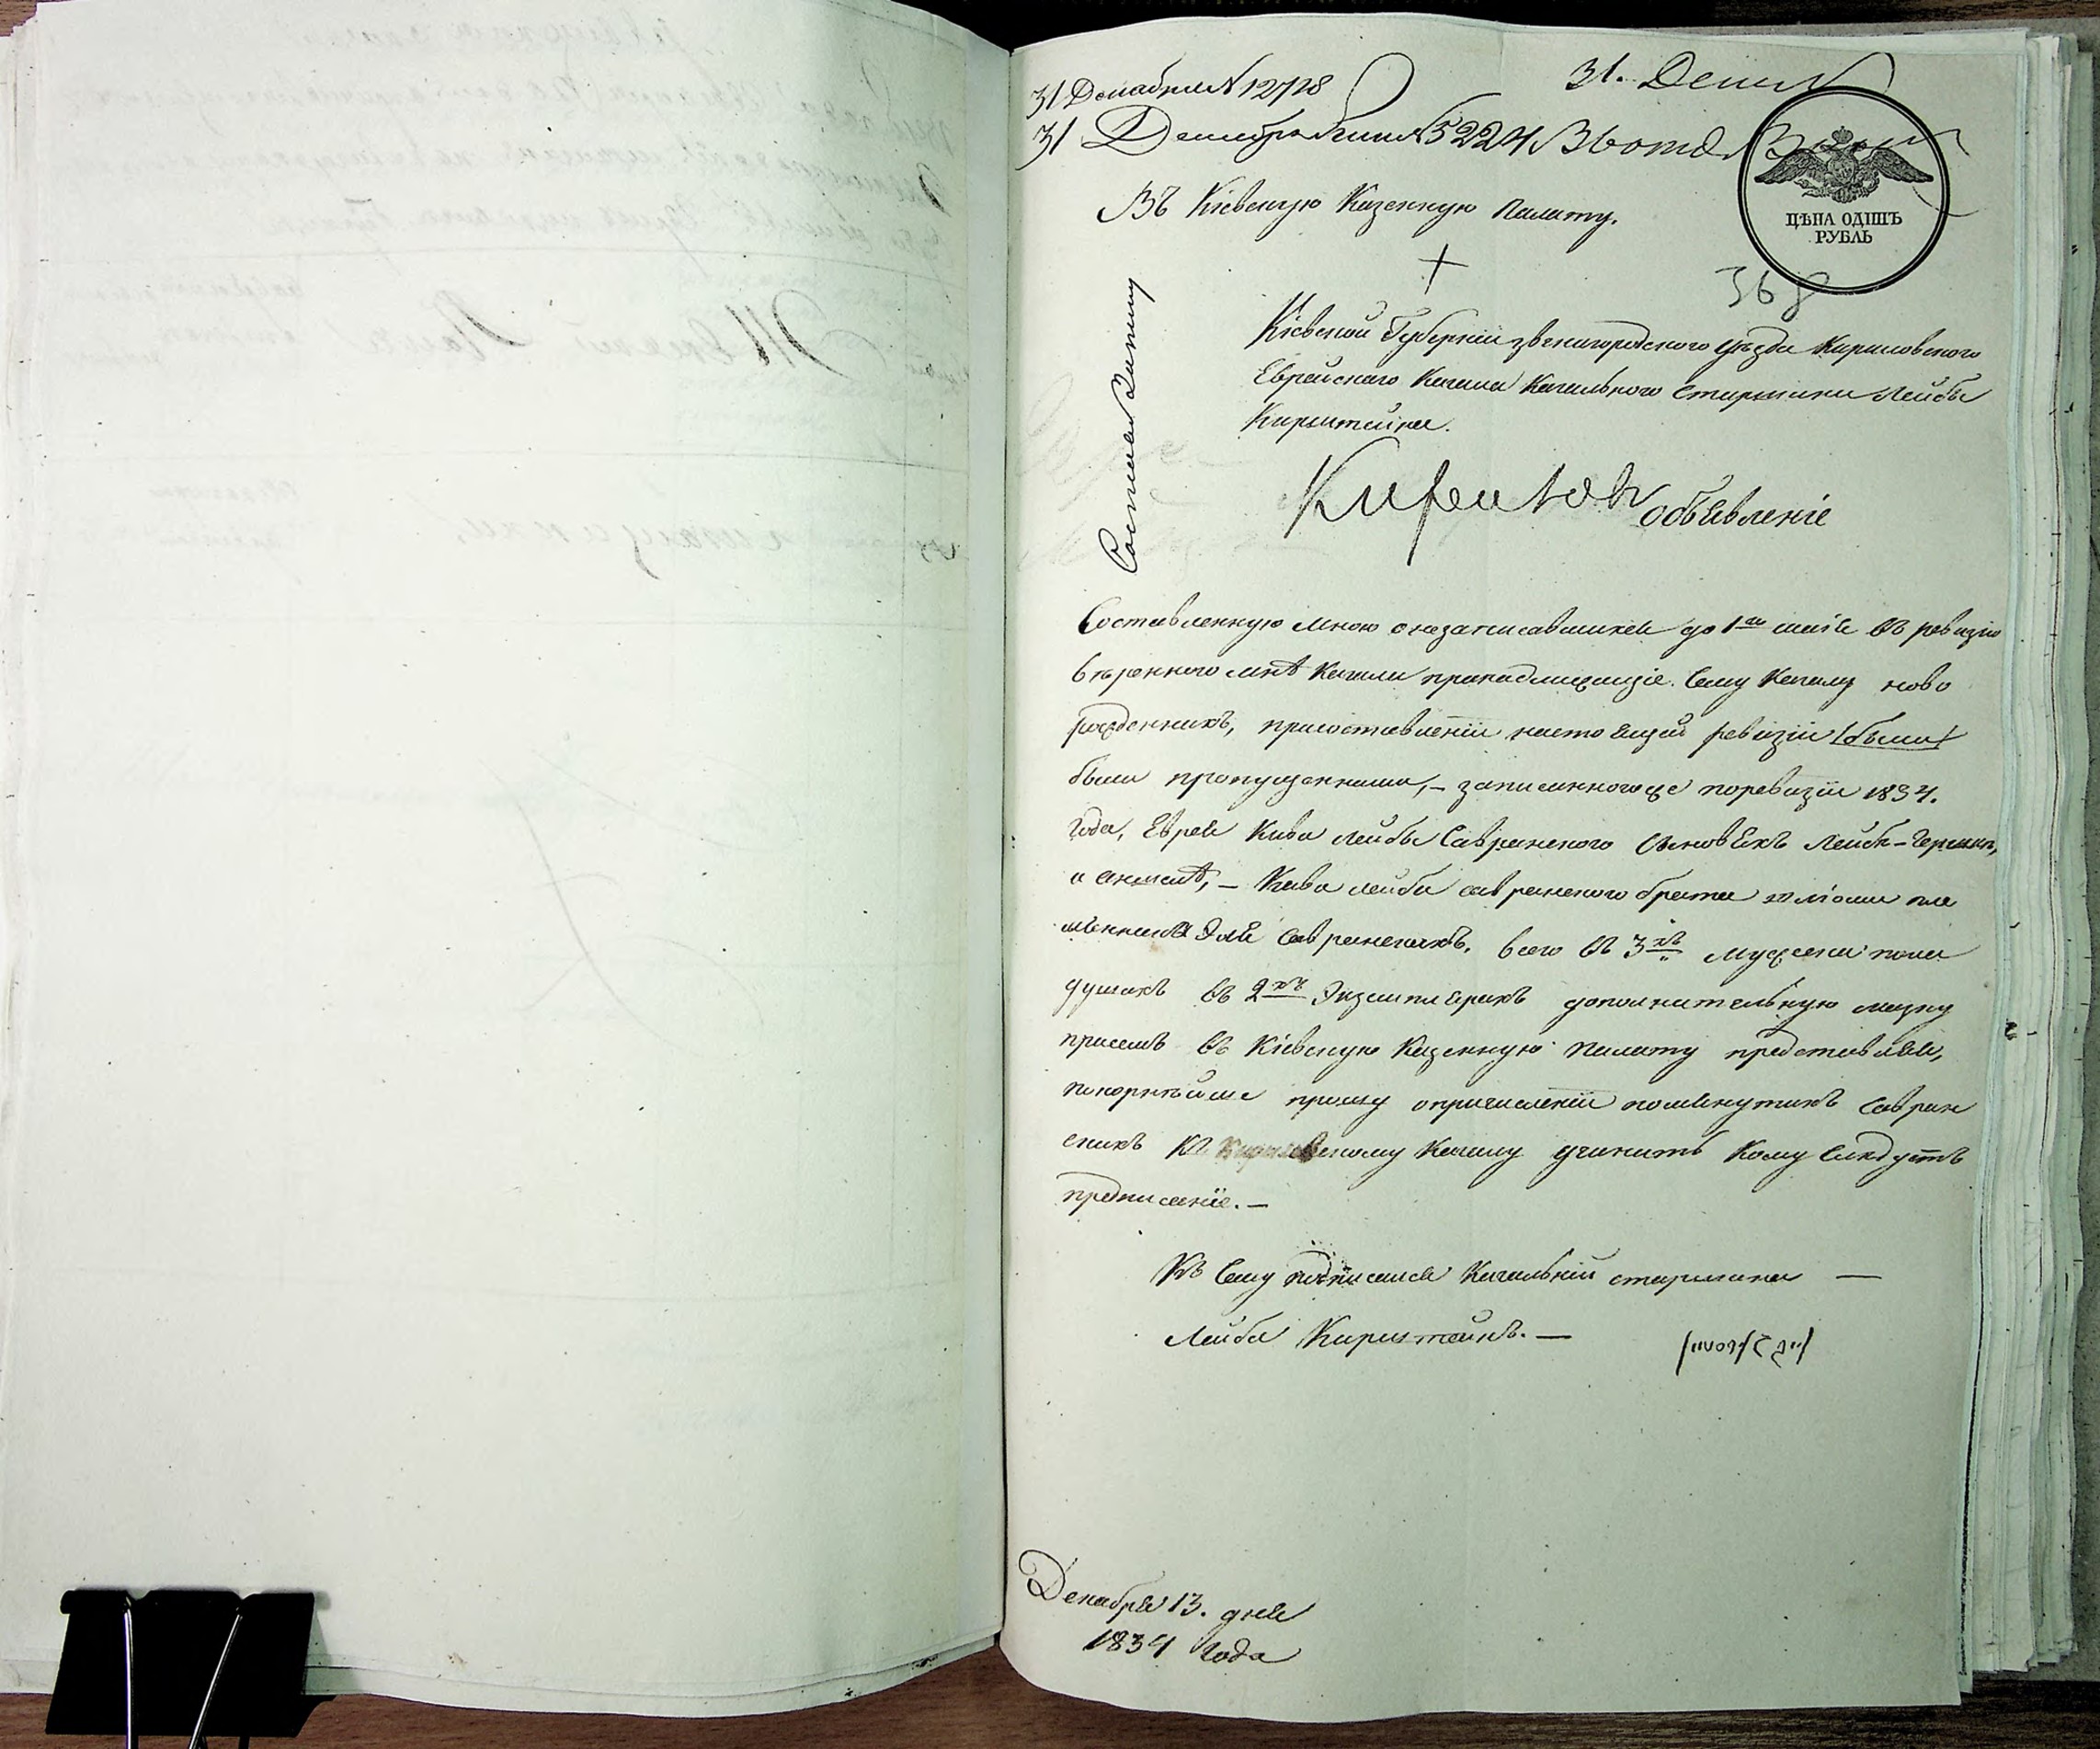 31 Декабря № 12728
31. Декаб
31 Декабря № 5224
Въ Кіевскую Казенную Палату.
ЦѢНА ОДИНЪ
РУБЛЬ
368
Кіевской Губерніи звенигородского уѣзда Кириловского
Еврейского Кагала Кагального Старшины Лейбы
Кирштейна.
объявленіе
Составленную мною о незаписавшихся до 1го маія въ ревизію
ввѣренного мнѣ Кагала принадлежащіе Сему Кагалу ново
рожденныхъ, присоставленіи настоящей ревизіи /были/
были пропущенными, – записанногоже поревизіи 1834.
года, Еврея Кива Лейбы Савранского сыновьяхъ Лейбѣ-Гершкѣ,
– Кива лейба савранского брата племянника Эля Савранскихъ. всего въ 3хъ мужеска пола
душахъ въ 2хъ Экземплярахъ дополнительную сказку
присемъ въ Кіевскую Казенную Палату представляя,
покорнѣйше прошу опричисленіи помянутыхъ Савран
скихъ къ Кириловскому Кагалу учинить Кому Слѣдуетъ
предписаніе. –
Къ Сему подписался Кагальній старшина –
Лейба Кирштейнъ. –
Декабря 13. дня
1834 Года